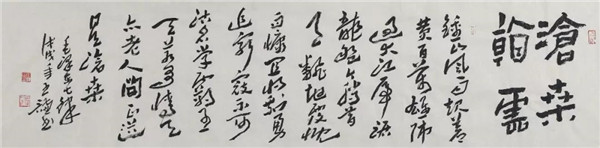 滄桑
翰雲
鍾山風雨起蒼
黄百萬雄師
過大江虎踞
龍盤今勝昔
天翻地覆慨
而慷宜將剩勇
追窮寇不可
沽名學霸王
天若有情天
亦老人間正道
是滄桑
毛澤東七律
戊戌年王